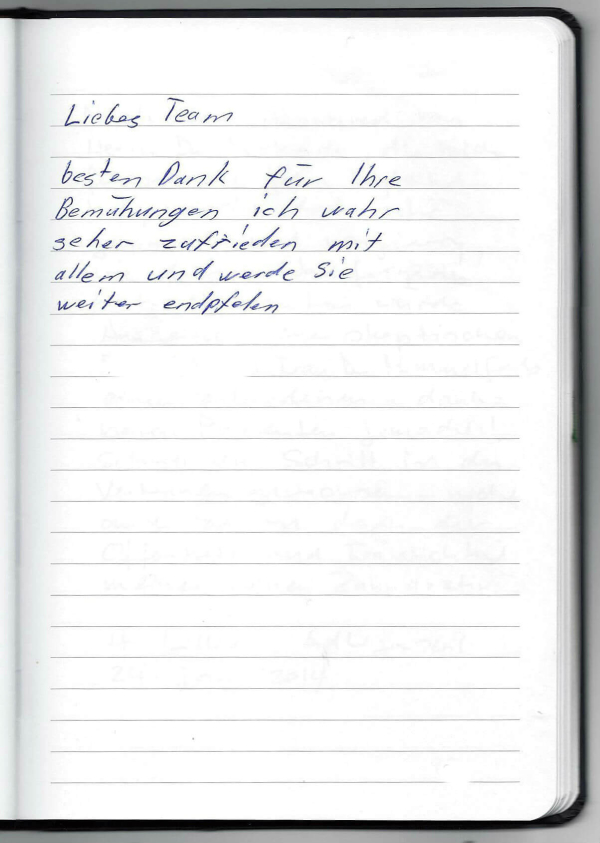 Liebes Team
besten Dank für Ihre
Bemühungen ich wahr
seher zufrieden mit
allem und werde Sie
weiter endpfelen